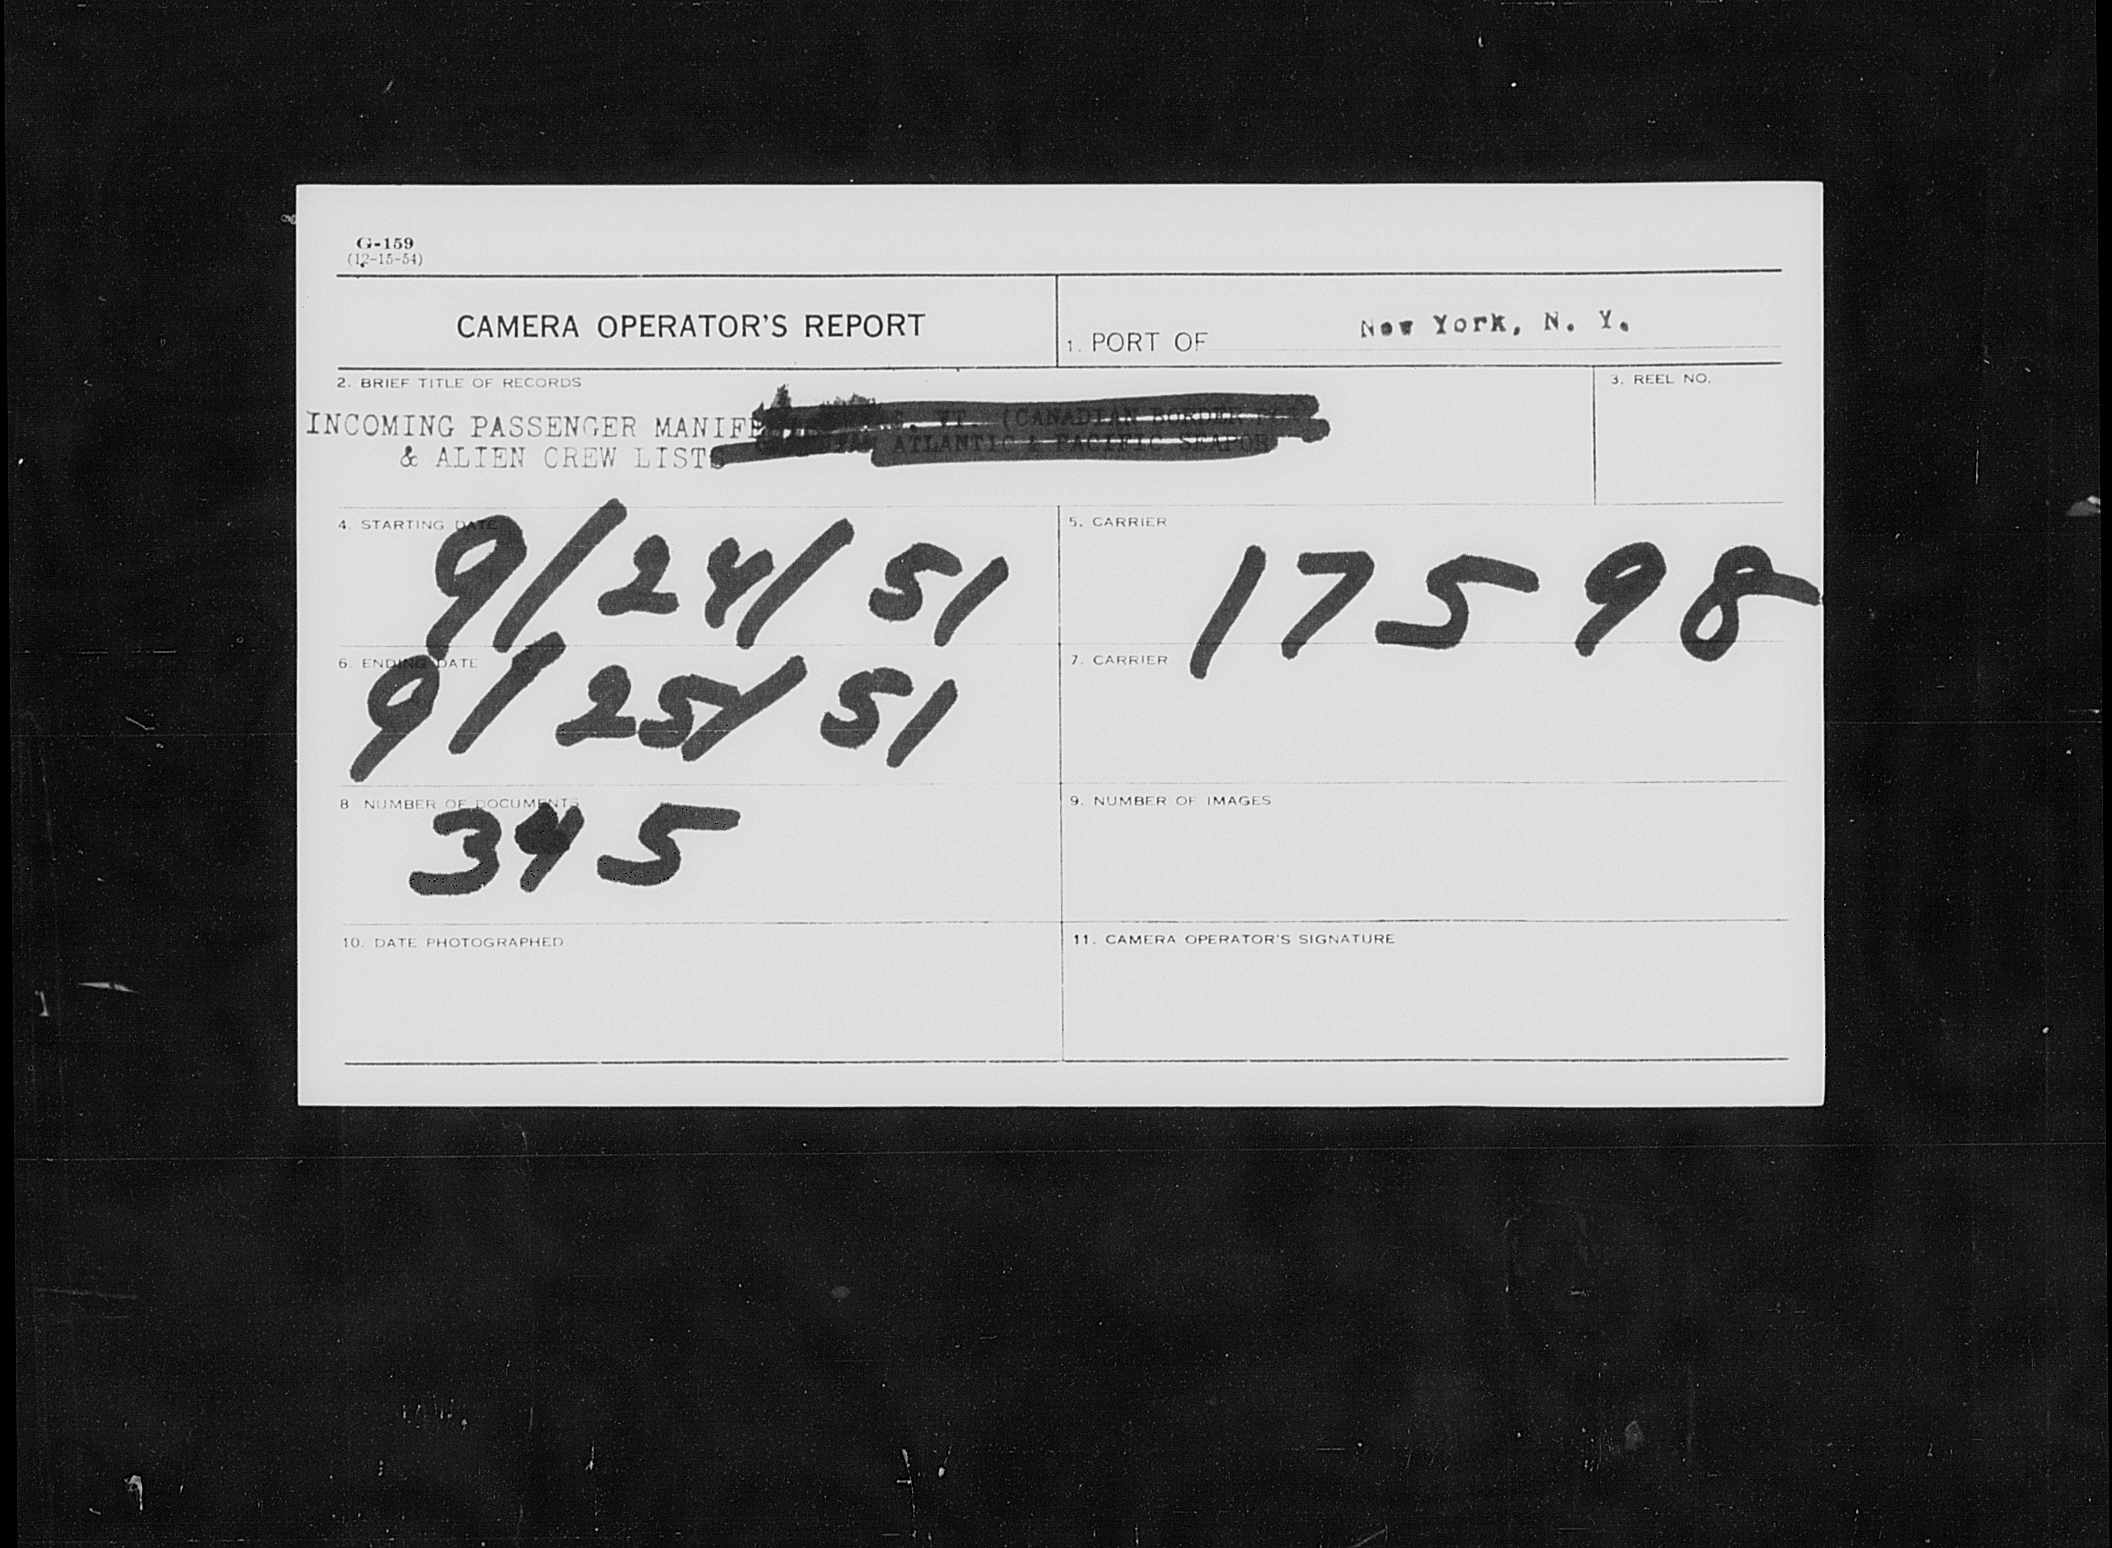 G-159
(12-15-54)
CAMERA OPERATOR'S REPORT
1. PORT OF New York, N. Y.
2. BRIEF TITLE OF RECORDS
3. REEL NO.
INCOMING PASSENGER MANIF VT. (CANADIAN BORDER
& ALIEN CREW LISTS ATLANTIC & PACIFIC SEAPOR
4. STARTING DATE
9/24/51
5. CARRIER
17598
6. ENDING DATE
9/25/51
7. CARRIER
8 NUMBER OF DOCUMENTS
345
9. NUMBER OF IMAGES
10. DATE PHOTOGRAPHED
11. CAMERA OPERATOR'S SIGNATURE